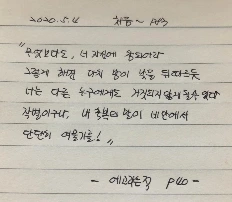 2020.5.4 처음 ~ P43
"무엇보다도, 너 자신에 충실하라
그렇게 하면 마치 밤이 낮을 뒤따르듯
너는 다른 누구에게도 거짓되지 않게 될 수 있다
작별이구나, 내 축복의 말이 네 안에서
단단히 여물기를!"
P40 -